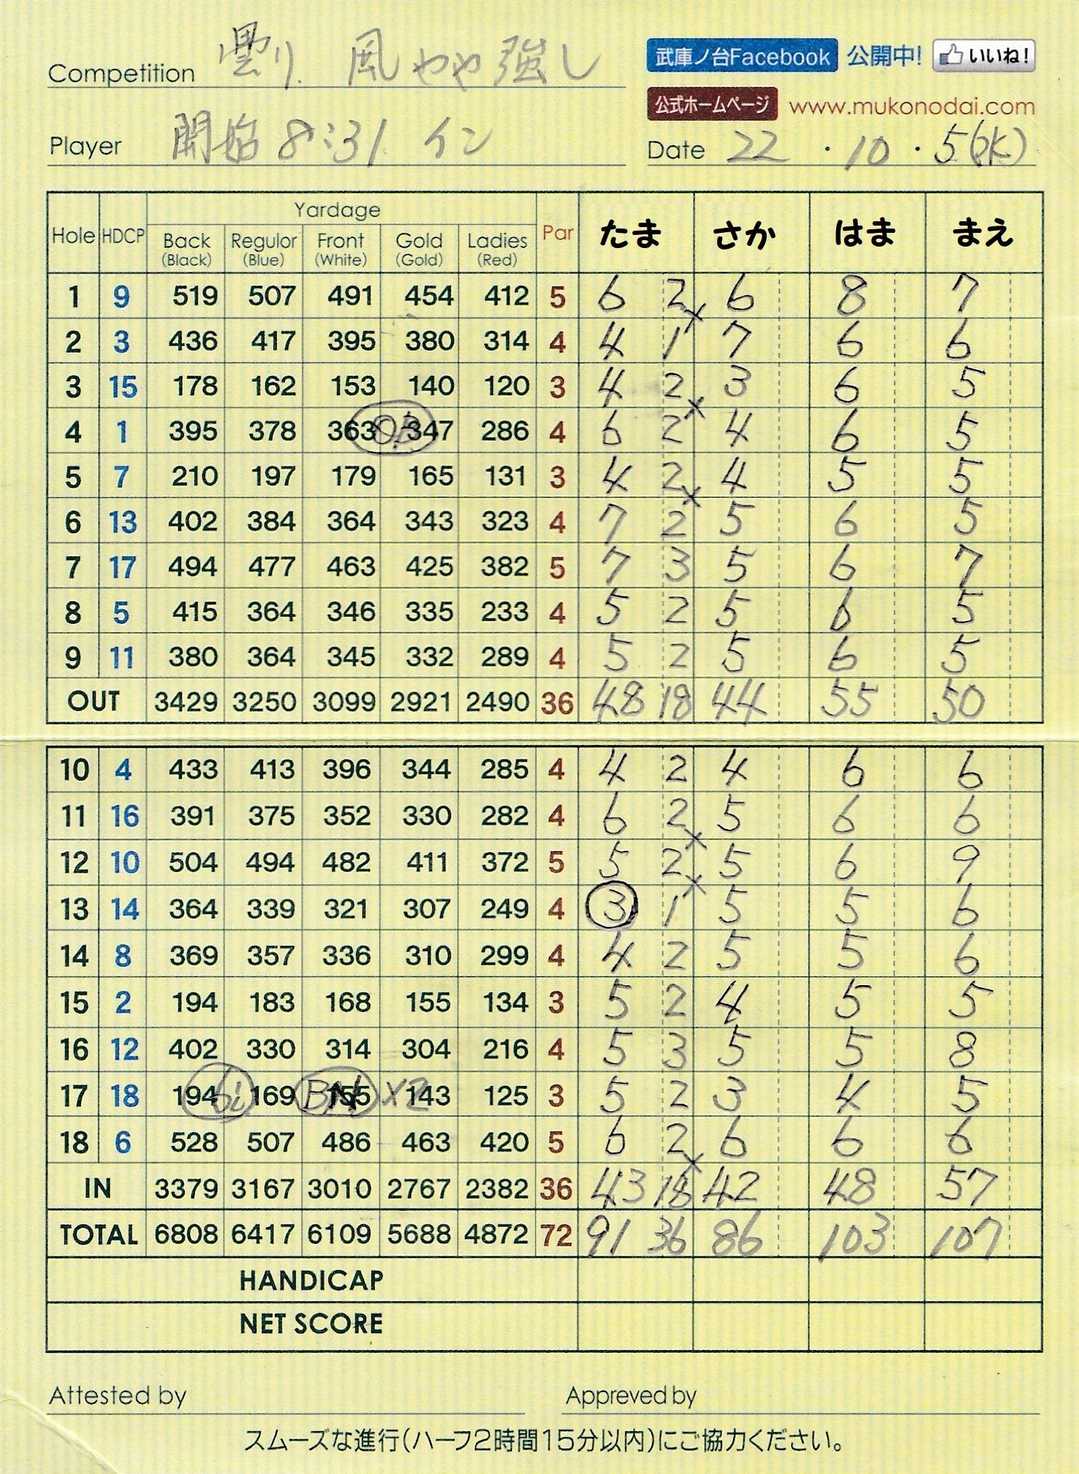 Competition 曇り 風やや強し
武庫ノ台Facebook 公開中! いいね!
公式ホームページ www.mukonodai.com
Player 開始 8:31 イン
Date 22 ・ 10 ・ 5(水)
Hole HDCP Yardage Par たま さか はま まえ
Back (Black) Regulor (Blue) Front (White) Gold (Gold) Ladies (Red)
1 9 519 507 491 454 412 5 6 2 6 8 7
2 3 436 417 395 380 314 4 4 1 7 6 6
3 15 178 162 153 140 120 3 4 2 3 6 5
4 1 395 378 363 OB 347 286 4 6 2 4 6 5
5 7 210 197 179 165 131 3 4 2 4 5 5
6 13 402 384 364 343 323 4 7 2 5 6 5
7 17 494 477 463 425 382 5 7 3 5 6 7
8 5 415 364 346 335 233 4 5 2 5 6 5
9 11 380 364 345 332 289 4 5 2 5 6 5
OUT 3429 3250 3099 2921 2490 36 48 18 44 55 50
10 4 433 413 396 344 285 4 4 2 4 6 6
11 16 391 375 352 330 282 4 6 2 5 6 6
12 10 504 494 482 411 372 5 5 2 5 6 9
13 14 364 339 321 307 249 4 3 1 5 5 6
14 8 369 357 336 310 299 4 4 2 5 5 6
15 2 194 183 168 155 134 3 5 2 4 5 5
16 12 402 330 314 304 216 4 5 3 5 5 8
17 18 194 169 155 X2 143 125 3 5 2 3 4 5
18 6 528 507 486 463 420 5 6 2 6 6 6
IN 3379 3167 3010 2767 2382 36 43 18 42 48 57
TOTAL 6808 6417 6109 5688 4872 72 91 36 86 103 107
HANDICAP
NET SCORE
Attested by Appreved by
スムーズな進行(ハーフ2時間15分以内)にご協力ください。